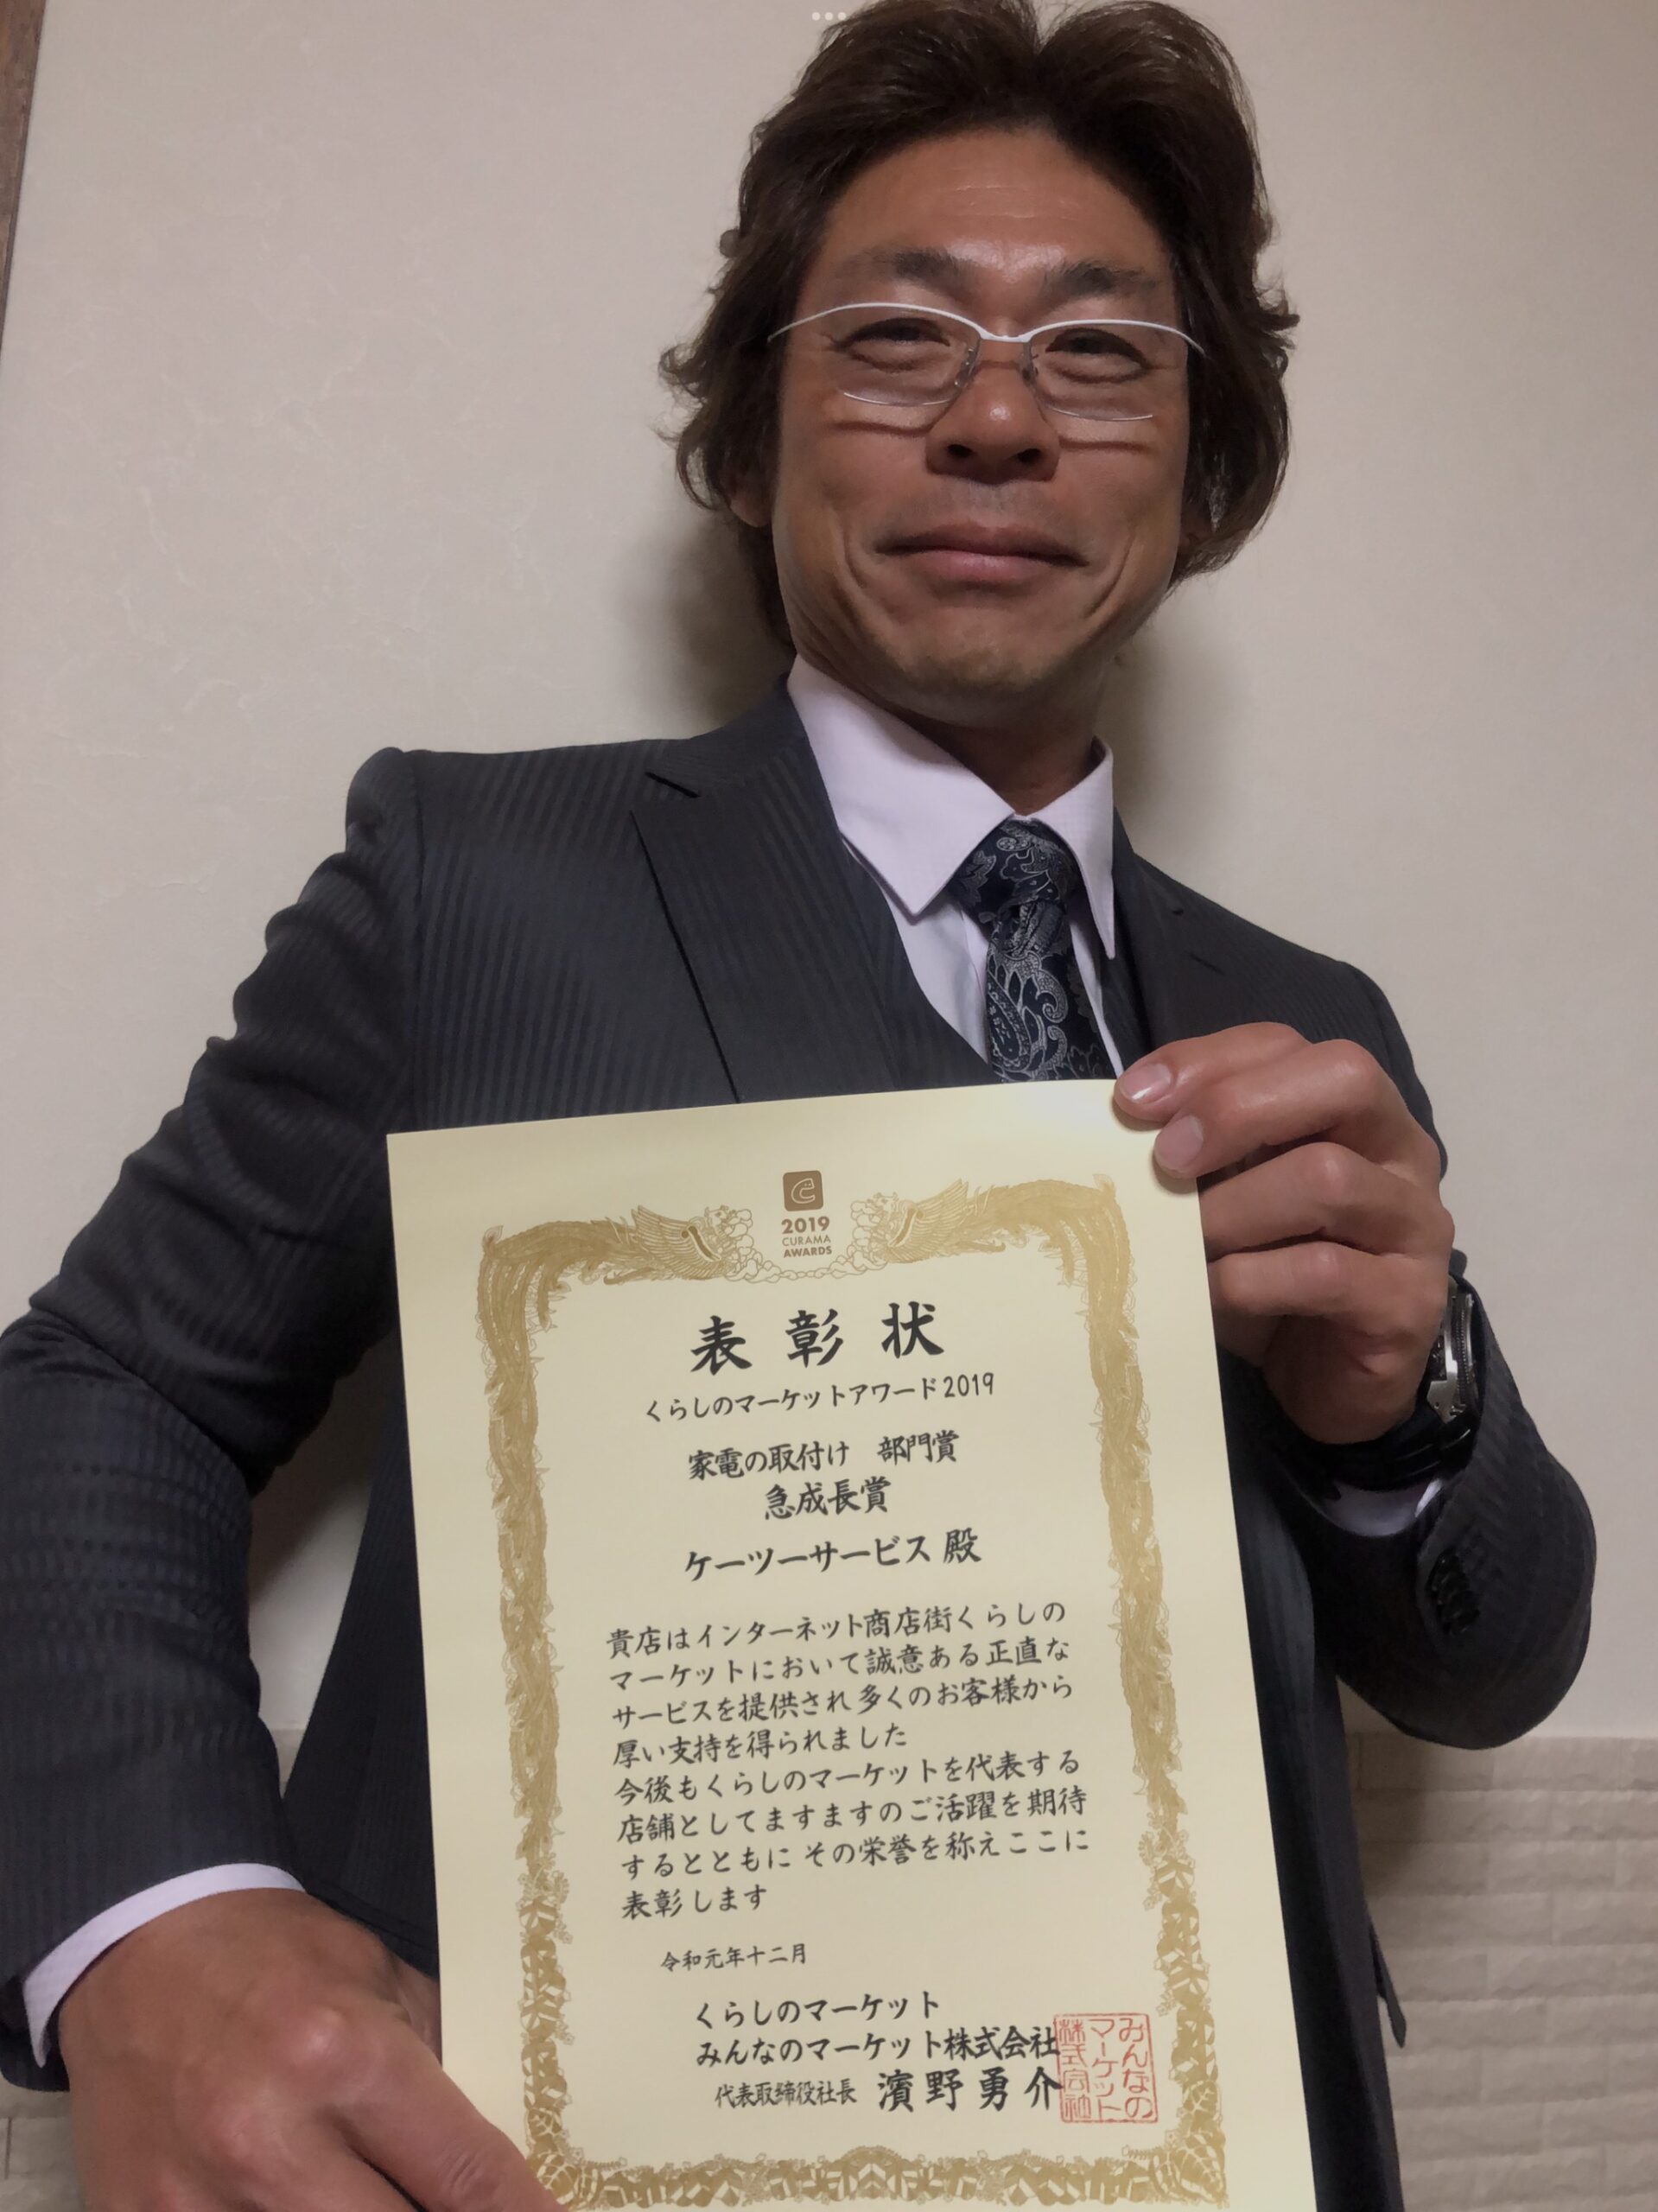 2019
CURAMA
AWARDS
表彰状
くらしのマーケットアワード2019
家電の取付け 部門賞
急成長賞
ケーツーサービス 殿
貴店はインターネット商店街くらしの
マーケットにおいて誠意ある正直な
サービスを提供され多くのお客様から
厚い支持を得られました
今後もくらしのマーケットを代表する
店舗としてますますのご活躍を期待
するとともに その栄誉を称えここに
表彰します
令和元年十二月
くらしのマーケット
みんなのマーケット株式会社
代表取締役社長 濱野勇介
みんなの
マーケット
株式会社